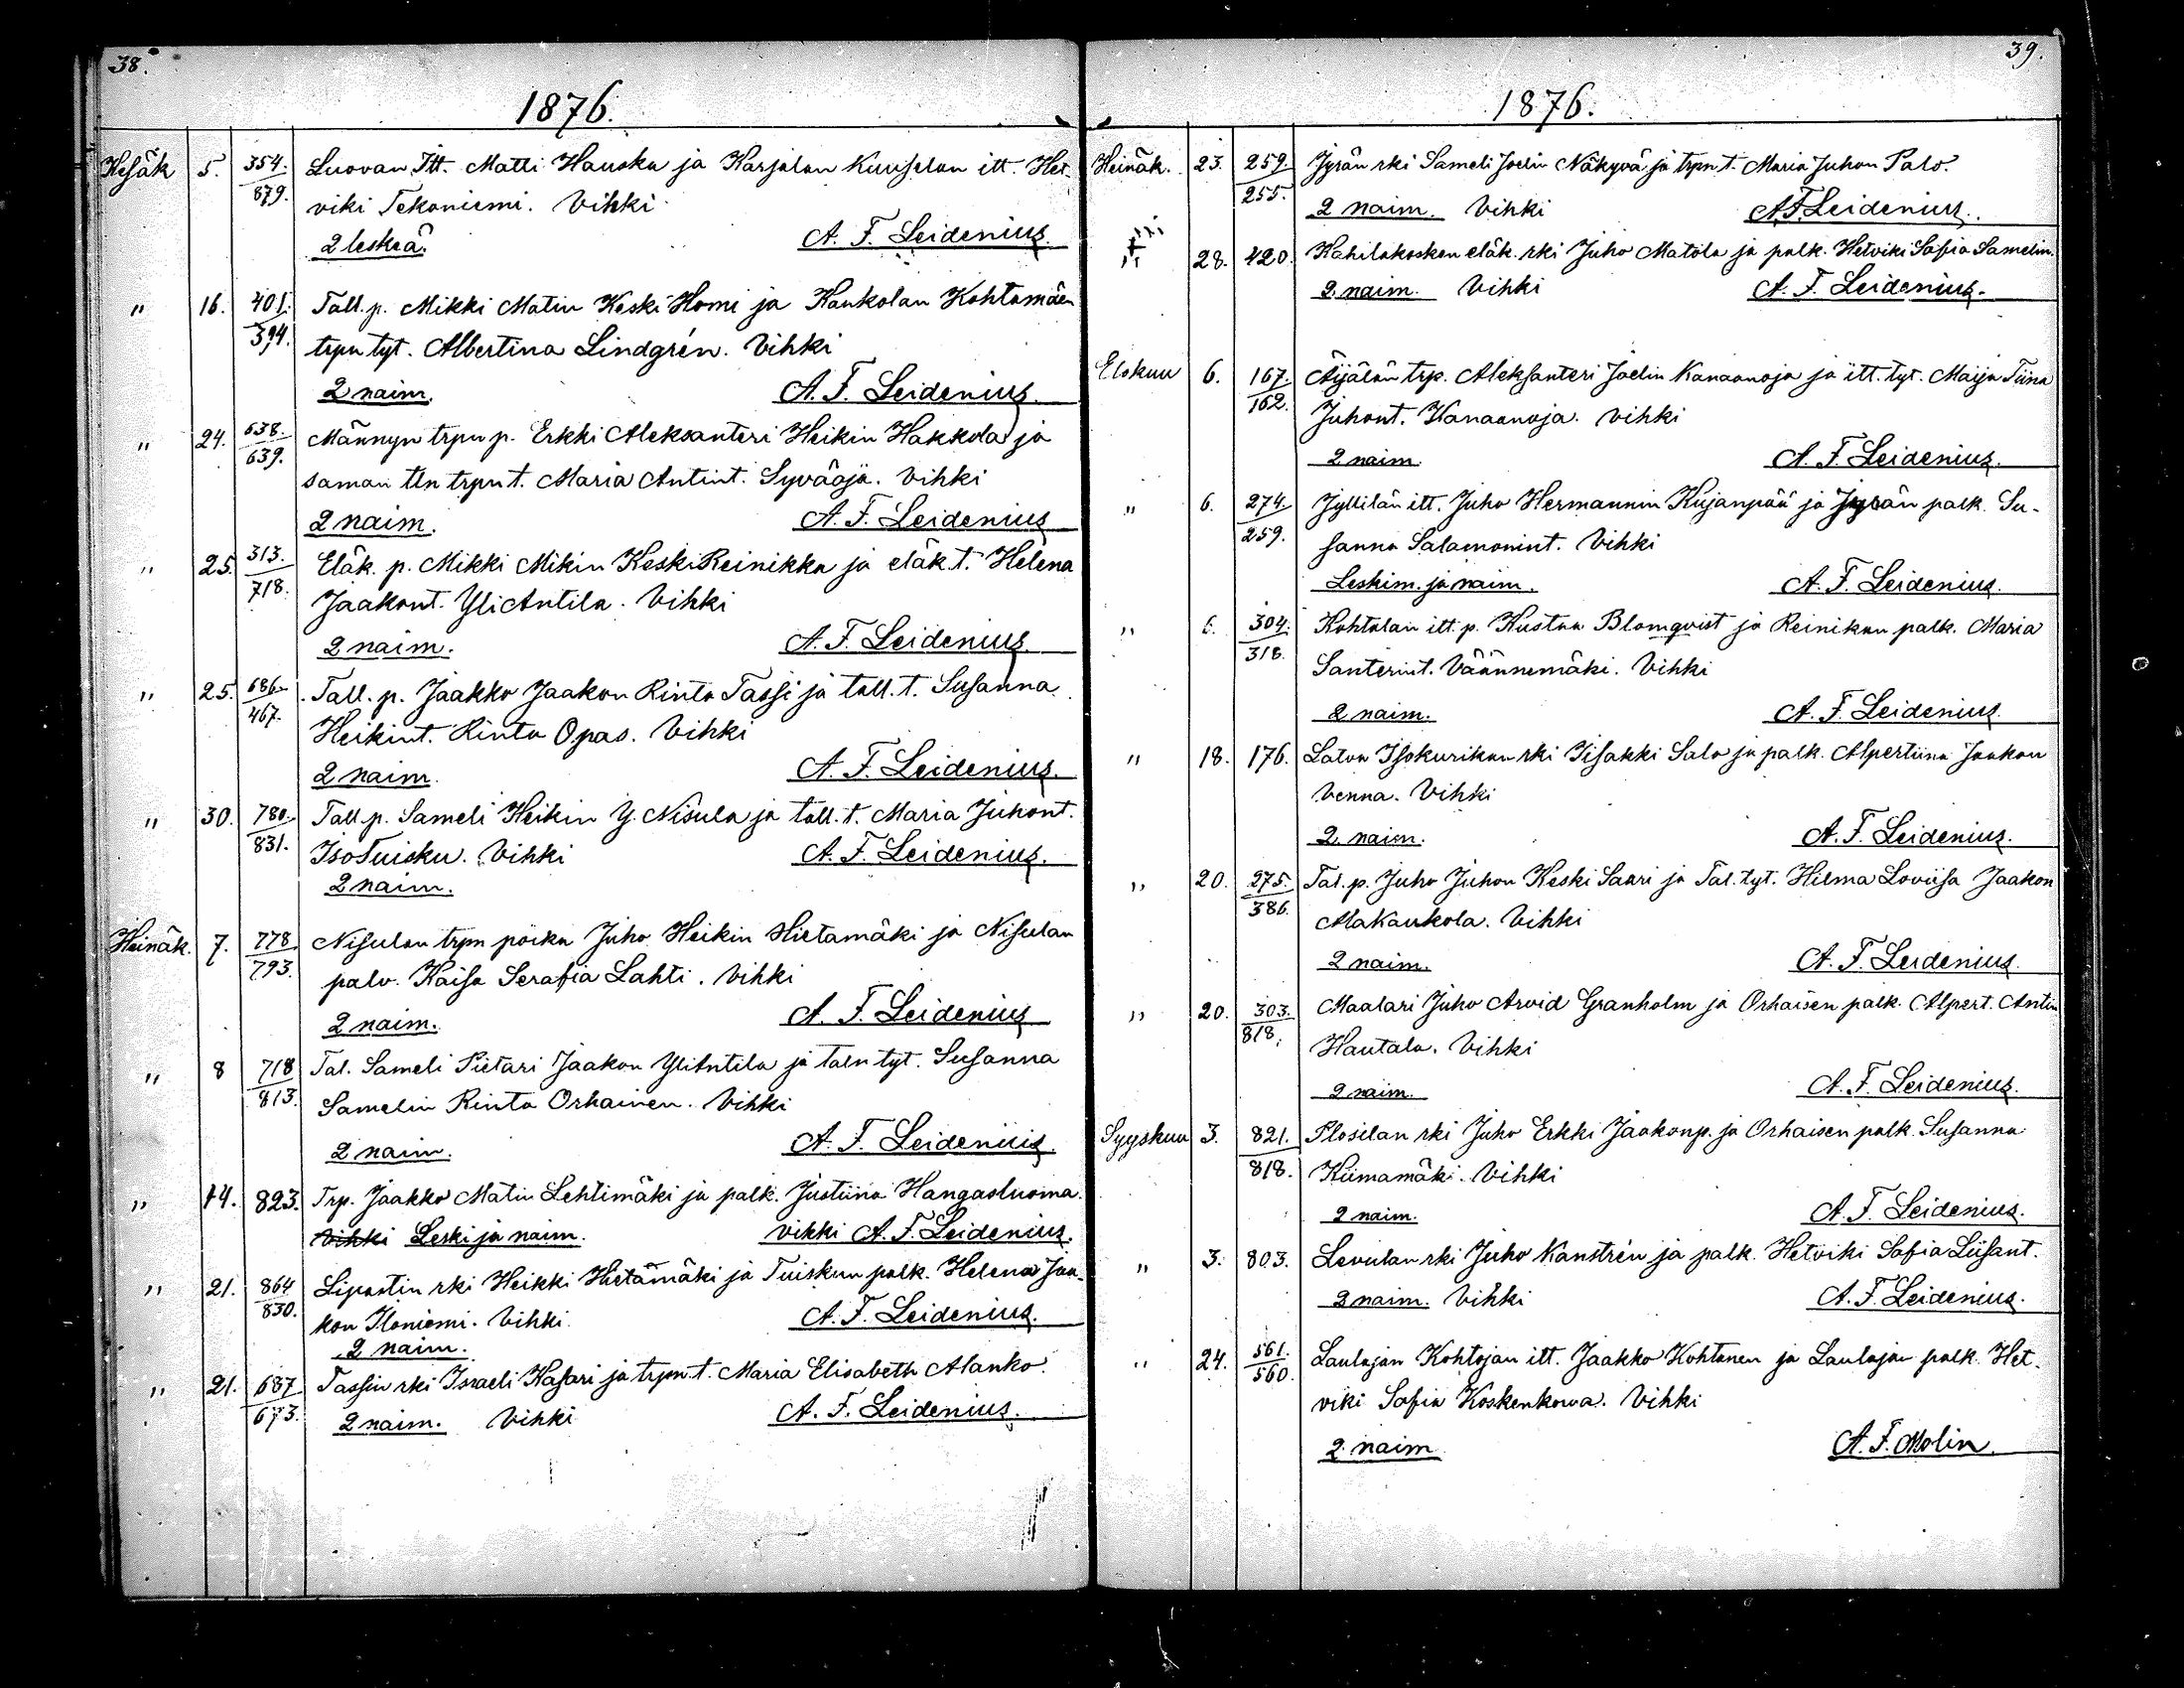 38.
1876.
Kesäk 5. 354. Luovan Itt. Matti Hauska ja Karjalan Kuuselan itt. Het-
879. viki Tekoniemi. Vihki
2 leskeä. A. F. Leidenius.
" 16. 401. Tall. p. Mikki Matin Keski Homi ja Kankolan Kohtamäen
394. trpn tyt. Albertina Lindgrén. Vihki
2 naim. A. F. Leidenius.
" 24. 638. Männyn trpn p. Erkki Aleksanteri Heikin Hakkola ja
639. saman tln trpn t. Maria Antint. Syväoja. Vihki
2 naim. A. F. Leidenius
" 25. 313. Eläk. p. Mikki Mikin Keski Reinikka ja eläk. t. Helena
718. Jaakont. Yli Antila. Vihki
2 naim. A. F. Leidenius.
" 25. 686. Tall. p. Jaakko Jaakon Rinta Tassi ja tall. t. Susanna
467. Heikint. Rinta Opas. Vihki
2 naim. A. F. Leidenius.
" 30. 780. Tall p. Sameli Heikin Y. Nisula ja tall. t. Maria Juhont.
831. Iso Tuisku. Vihki A. F. Leidenius.
2 naim.
Heinäk. 7. 778. Nisulan trpn poika Juho Heikin Hietamäki ja Nisulan
793. palv. Kaisa Serafia Lahti. Vihki
2 naim. A. F. Leidenius
" 8 718 Tal. Sameli Pietari Jaakon Yli Antila ja taln tyt. Susanna
813. Samelin Rinta Orhainen. Vihki
2 naim. A. F. Leidenius.
" 14. 823. Trp. Jaakko Matin Lehtimäki ja palk. Justiina Hangasluoma.
Vihki Leski ja naim. vihki A. F. Leidenius.
" 21. 864 Lipastin rki Heikki Hietamäki ja Tuiskun palk. Helena Jaa-
830. kon Iloniemi. Vihki. A. F. Leidenius.
2 naim.
" 21. 687 Tassin rki Israeli Hasari ja trpn t. Maria Elisabeth Alanko.
673. 2 naim. Vihki A. F. Leidenius.
39.
1876.
Heinäk. 23. 259. Jyrän rki Sameli Joelin Näkyvä ja trpn t. Maria Juhon Palo.
255. 2 naim. Vihki A F Leidenius.
" 28. 420. Kahilakosken eläk. rki Juho Matola ja palk. Hetviki Sofia Samelin.
2 naim. Vihki A. F. Leidenius.
Elokuu 6. 167. Äijälän trp. Aleksanteri Joelin Kanaanoja ja itt. tyt. Maija Tiina
162. Juhont. Kanaanoja. Vihki
2 naim. A. F. Leidenius.
" 6. 274. Jyllilän itt. Juho Hermannin Kujanpää ja Jyrän palk. Su-
259. sanna Salamonint. Vihki
Leskim. ja naim. A. F. Leidenius.
" 6. 304. Kohtalan itt. p. Kustaa Blomqvist ja Reinikan palk. Maria
318. Santerint. Väännemäki. Vihki
2 naim. A. F. Leidenius
" 18. 176. Latva Isokurikan rki Iisakki Salo ja palk. Alpertiina Jaakon
Venna. Vihki
2 naim. A. F. Leidenius.
" 20. 275. Tal. p. Juho Juhon Keski Saari ja Tal. tyt. Hilma Loviisa Jaakon
386. Ala Kaukola. Vihki
2 naim. A. F. Leidenius
" 20. 303. Maalari Juho Arvid Granholm ja Orhaisen palk. Alpert. Antin
818. Hautala. Vihki
2 naim. A. F. Leidenius.
Syyskuu 3. 821. Plosilan rki Juho Erkki Jaakonp. ja Orhaisen palk. Susanna
818. Kiimamäki. Vihki
2 naim. A. F. Leidenius.
" 3. 803. Levulan rki Juho Kanstrén ja palk. Hetviki Sofia Liisant.
2 naim. Vihki A. F. Leidenius.
" 24. 561. Laulajan Kohtojan itt. Jaakko Kohtanen ja Laulajan palk. Het-
560. viki Sofia Koskenkorva. Vihki
2 naim A. F. Molin.